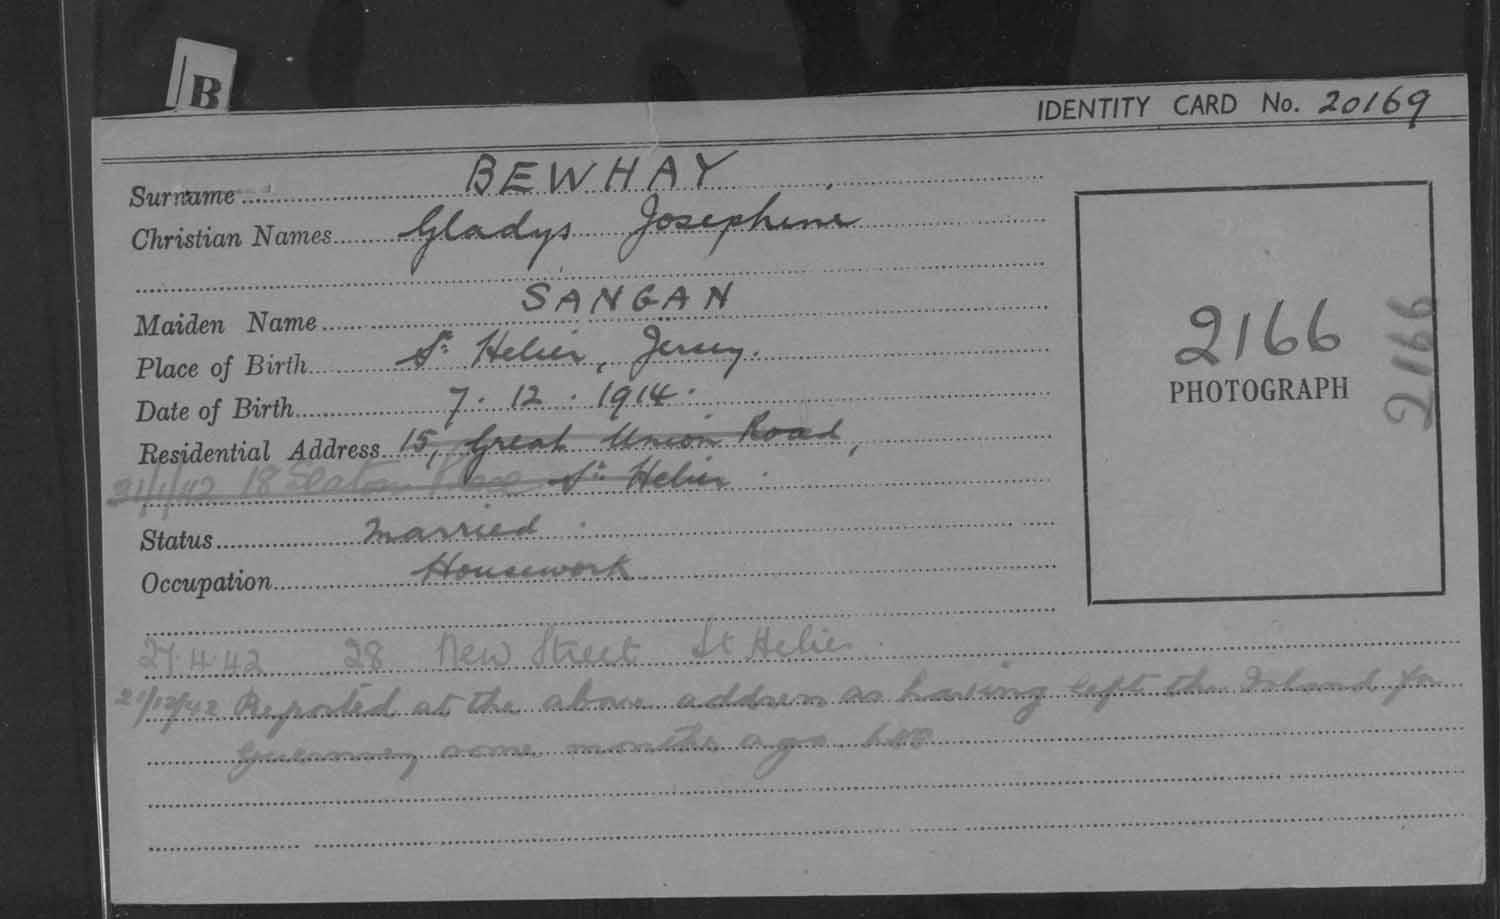 B
IDENTITY CARD No. 20169
Surname BEWHAY
Christian Names Gladys Josephine
Maiden Name SANGAN
Place of Birth St. Helier, Jersey.
Date of Birth 7. 12. 1914.
Residential Address 15, Great Union Road,
21/1/42 18 Seaton Place St. Helier.
Status Married
Occupation Housework
27.4.42 28 New Street St Helier.
21/12/42 Reported at the above address as having left the Island for
Guernsey some months ago
2166
PHOTOGRAPH
2166